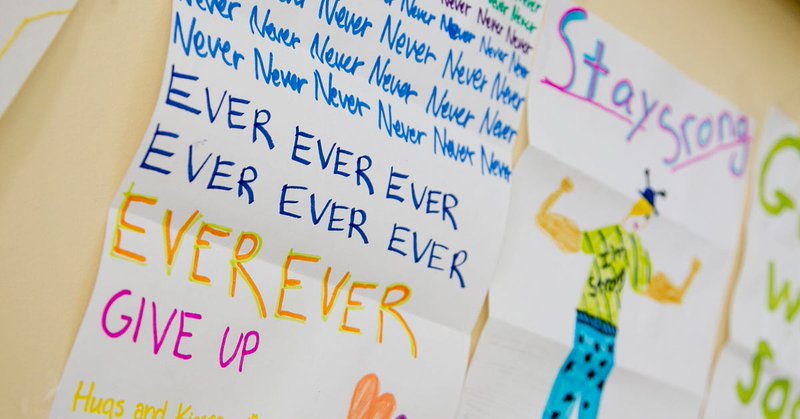 Never Never Never Never Never Never
Never Never Never Never Never Never
Never Never Never Never Never Never
EVER EVER EVER
EVER EVER EVER
EVER EVER
GIVE UP
Hugs and
Stay Srong
I'm
Strong